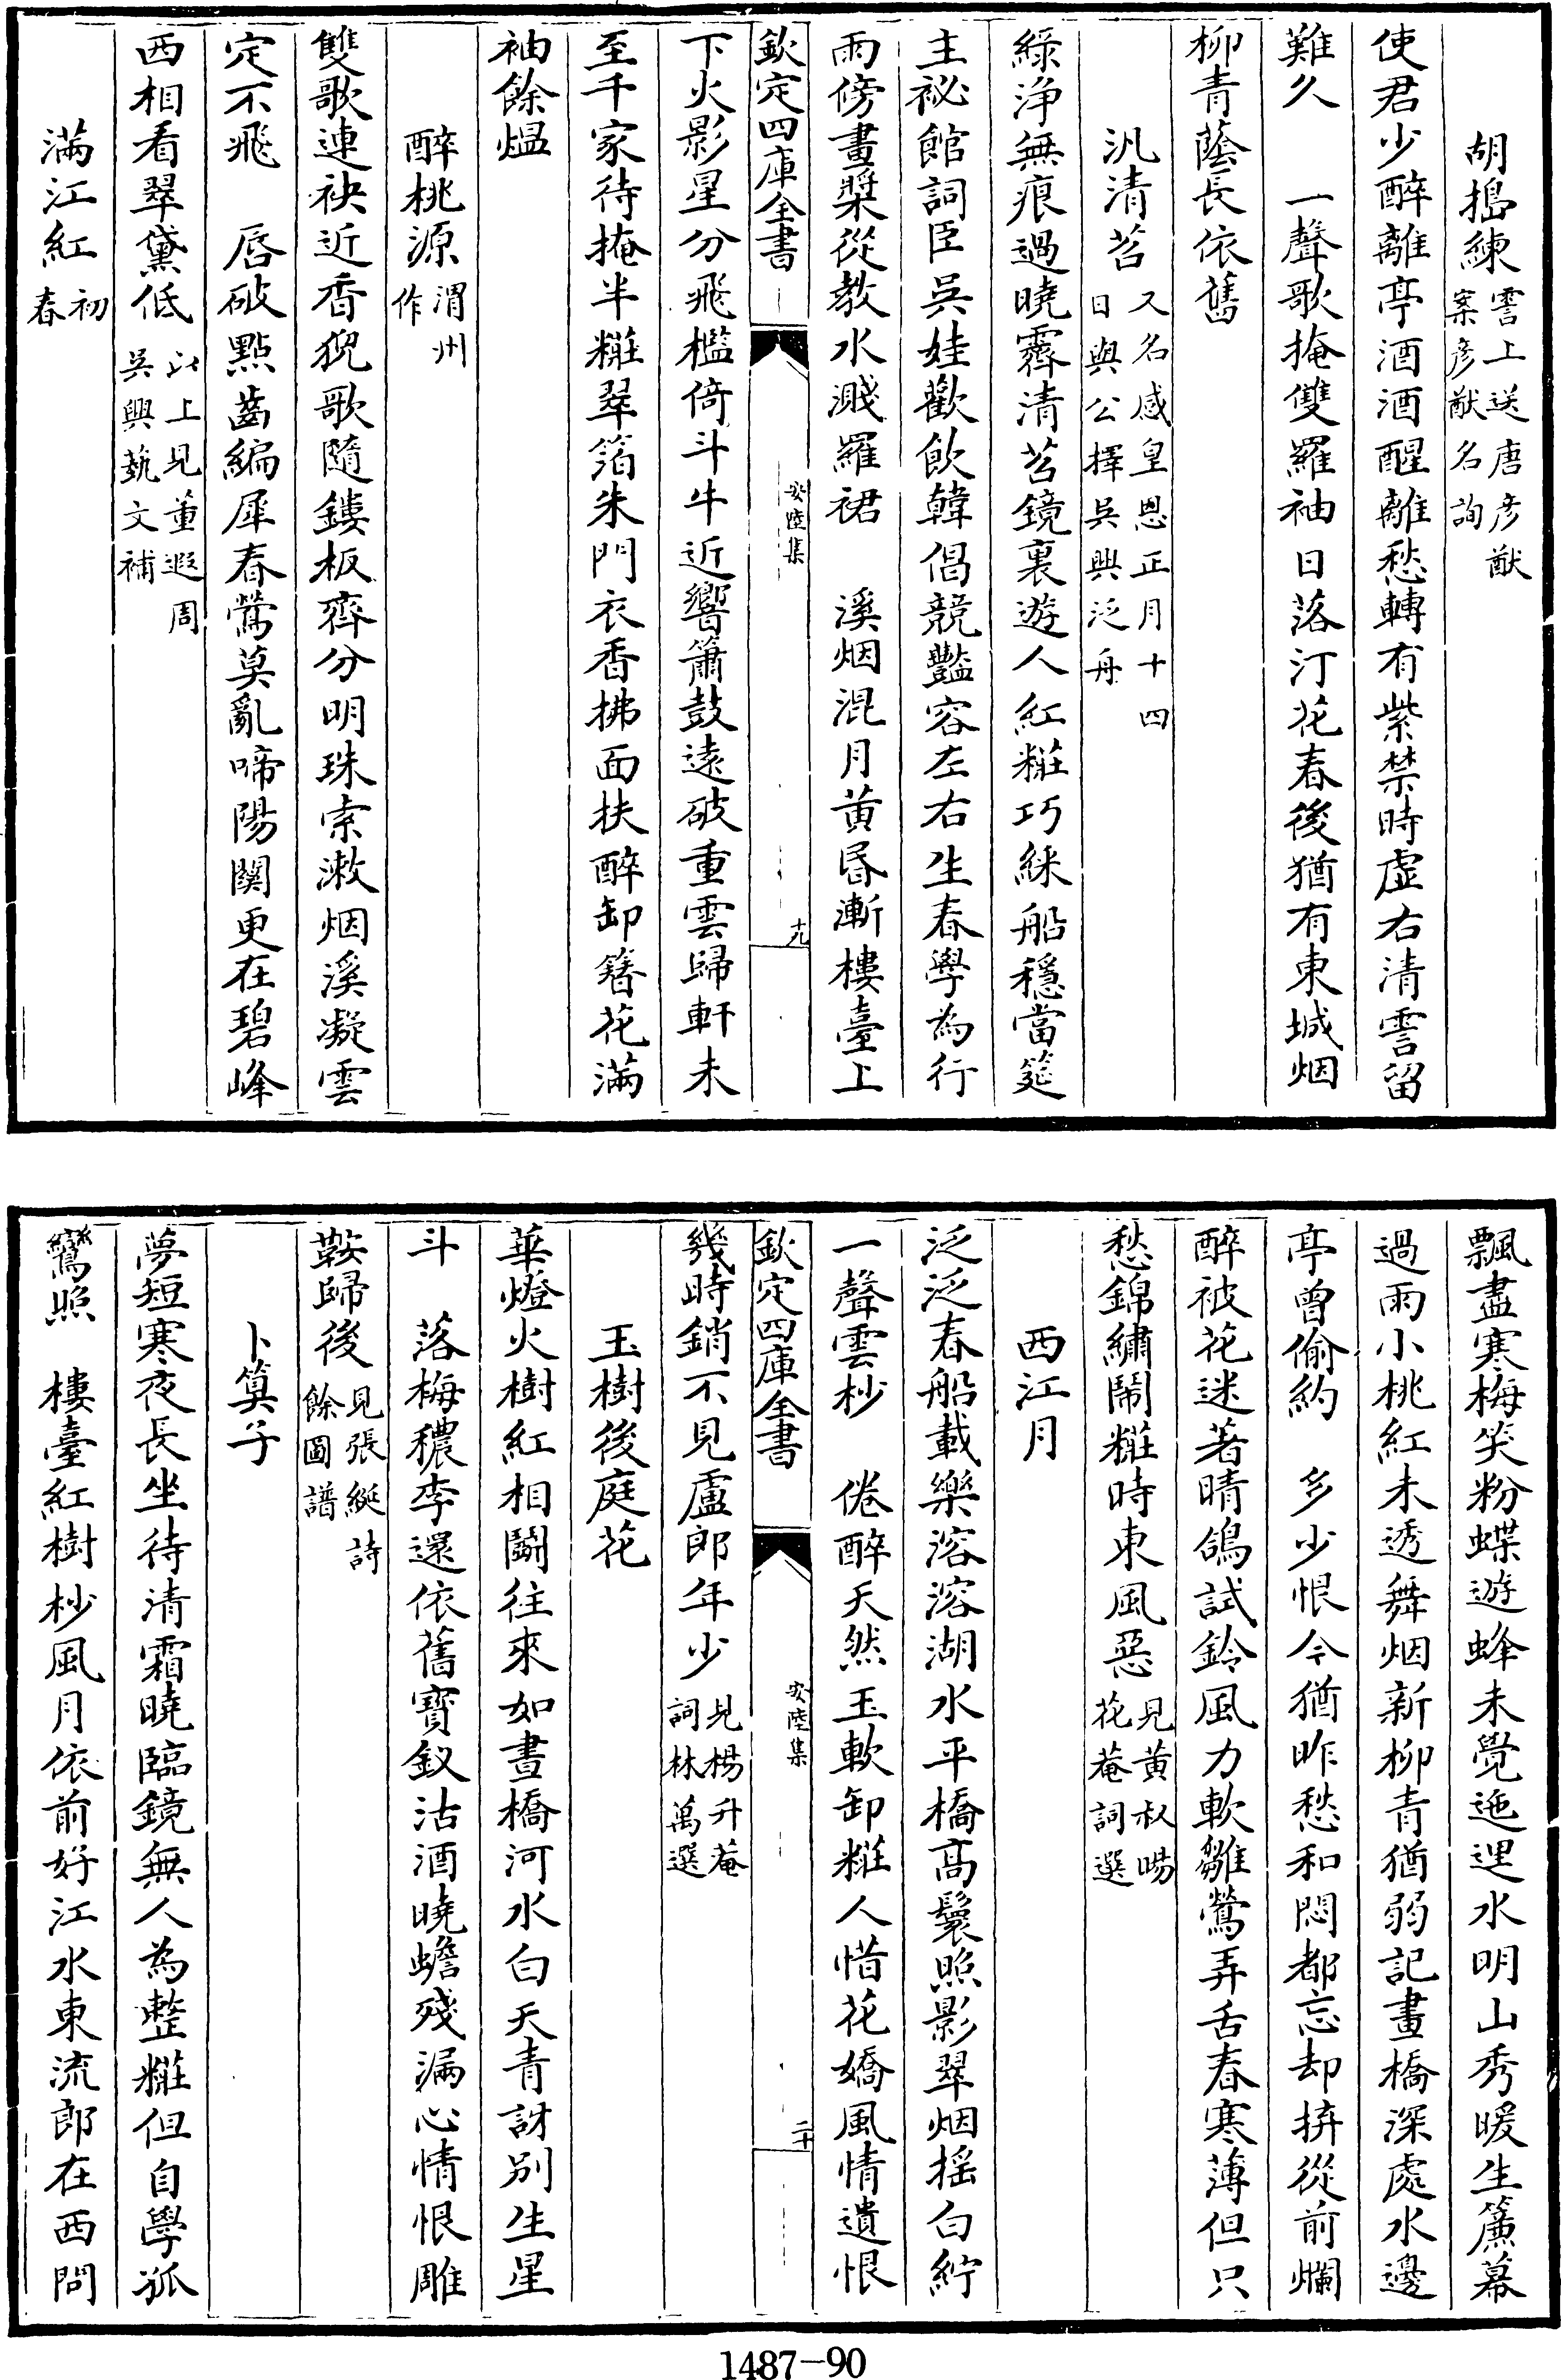 胡搗練霅上送唐彦猷案彦猷名詢
使君少醉離亭酒酒醒離愁轉有紫禁時虚右清霅留
難久　一聲歌掩雙羅袖日落汀花春後猶有東城烟
柳青蔭長依舊
汎清苕又名感皇恩正月十四日與公擇吳興泛舟
綠浄無痕過曉霽清苕鏡裏遊人紅糚巧綵船穩當筵
主祕館詞臣吳娃歡飲韓倡競豔容左右生春學為行
雨傍畫槳從教水濺羅裙　溪烟混月黄昏漸樓臺上
欽定四庫全書　安陸集　十九
下火影星分飛檻倚斗牛近響簫鼓遠破重雲歸軒未
至千家待掩半糚翠箔朱門衣香拂面扶醉卸簪花滿
袖餘煴
醉桃源渭州作
雙歌連袂近香猊歌隨鏤板齊分明珠索漱烟溪凝雲
定不飛　唇破點齒編犀春鶯莫亂啼陽關更在碧峰
西相看翠黛低以上見董遐周吳興藝文補
滿江紅初春
飄盡寒梅笑粉蝶遊蜂未覺迤逦水明山秀暖生簾幕
過雨小桃紅未透舞烟新柳青猶弱記畫橋深處水邊
亭曾偷約　多少恨今猶昨愁和悶都忘却拚從前爛
醉被花迷著晴鴿試鈴風力軟雛鶯弄舌春寒薄但只
愁錦繡鬧糚時東風惡見黄叔暘花菴詞選
西江月
泛泛春船載樂溶溶湖水平橋高鬟照影翠烟揺白紵
一聲雲杪　倦醉天然玉軟卸糚人惜花嬌風情遺恨
欽定四庫全書　安陸集　二十
幾時銷不見盧郎年少見楊升菴詞林萬選
玉樹後庭花
華燈火樹紅相鬬往來如晝橋河水白天青訝别生星
斗　落梅穠李還依舊寳釵沽酒曉蟾殘漏心情恨雕
鞍歸後見張綖詩餘圖譜
卜算子
夢短寒夜長坐待清霜曉臨鏡無人為整糚但自學孤
鸞照　樓臺紅樹杪風月依前好江水東流郎在西問
1487—90